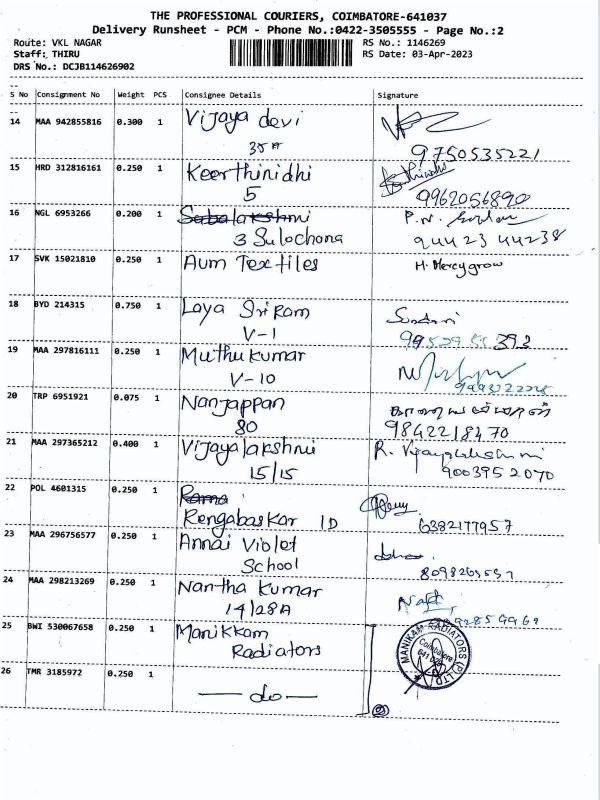 THE PROFESSIONAL COURIERS, COIMBATORE-641037
Delivery Runsheet - PCM - Phone No.:0422-3505555 - Page No.:2
Route: VKL NAGAR
RS No.: 1146269
Staff: THIRU
RS Date: 03-Apr-2023
DRS No.: DCJB114626902
S No Consignment No Weight PCS Consignee Details Signature
14 MAA 942855816 0.300 1 Vijaya devi
35A
9750535221
15 HRD 312816161 0.250 1 Keerthinidhi
5
9962056890
16 NGL 6953266 0.200 1 Sabalakshmi
3 Sulochona
94423 44238
17 SVK 15021810 0.250 1 Aum Textiles H. Mercygrow
18 BYD 214315 0.750 1 Laya Sri Ram
V-1
19 MAA 297816111 0.250 1 Muthu kumar
V-10
20 TRP 6951921 0.075 1 Nanjappan
80
9842218470
21 MAA 297365212 0.400 1 Vijayalakshmi R. Vijayalakshmi
15/15 9003952070
22 POL 4601315 0.250 1 Rama
Rengabaskar 1D
6382177957
23 MAA 296756577 0.250 1 Annai Violet
School
24 MAA 298213269 0.250 1 Nantha Kumar
14/28A
25 BWI 530067658 0.250 1 Manikkam
Radiators
MANIKAM RADIATORS (P) LTD
Coimbatore
26 TMR 3185972 0.250 1 — do —